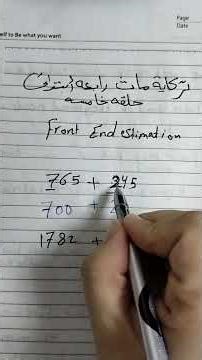 Page
Date
self to Be what you want
تركاية مات رابعة ابتدائي
حلقه خامسه
Front End estimation
765 + 245
700 +
1782 +